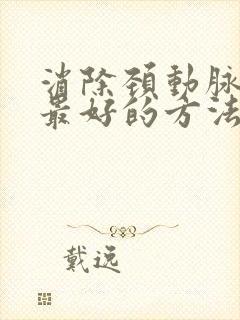 消除頚動脉
最好的方法
戴逸